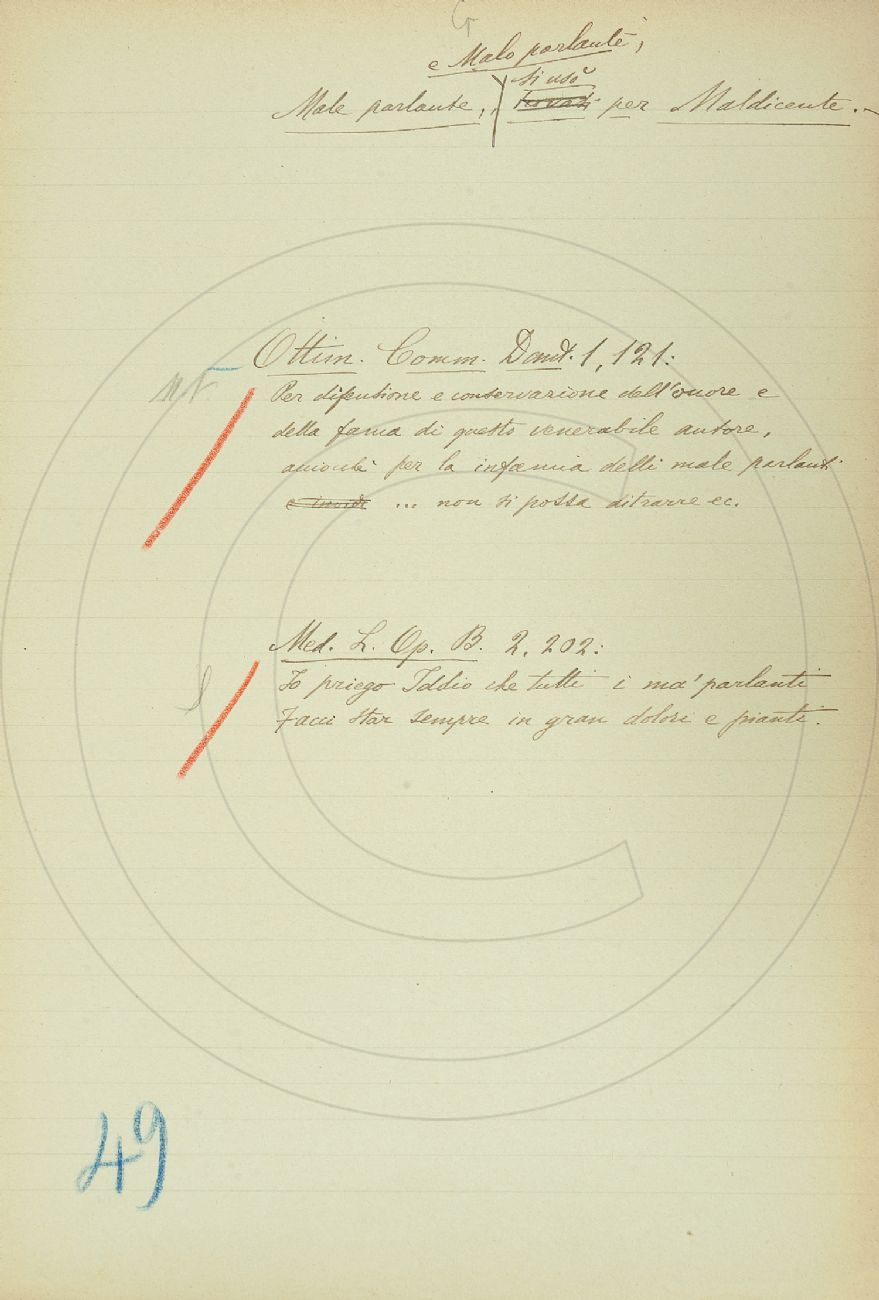 G
e Malo parlante,
si usò
Male parlante, trovasi per Maldicente. -
Ottim. Comm. Dant. 1, 121:
Per difensione e conservazione dell'onore e
della fama di questo venerabile autore,
acciocchè per la infamia delli male parlanti
e invidi ... non si possa ditrarre ec.
Med. L. Op. B. 2, 202:
Io priego Iddio che tutti i ma' parlanti
Facci star sempre in gran dolori e pianti.
49